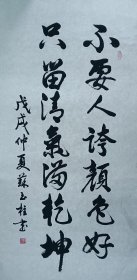 不要人誇顏色好
只留清氣滿乾坤
戊戌仲夏蘇玉桂書